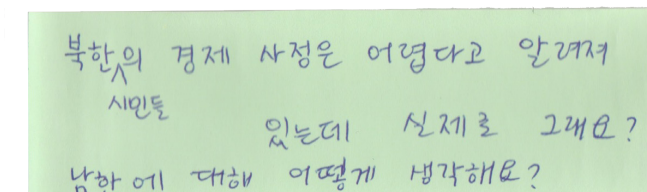 북한 시민들의 경제 사정은 어렵다고 알려져
있는데 실제로 그래요?
남한에 대해 어떻게 생각해요?